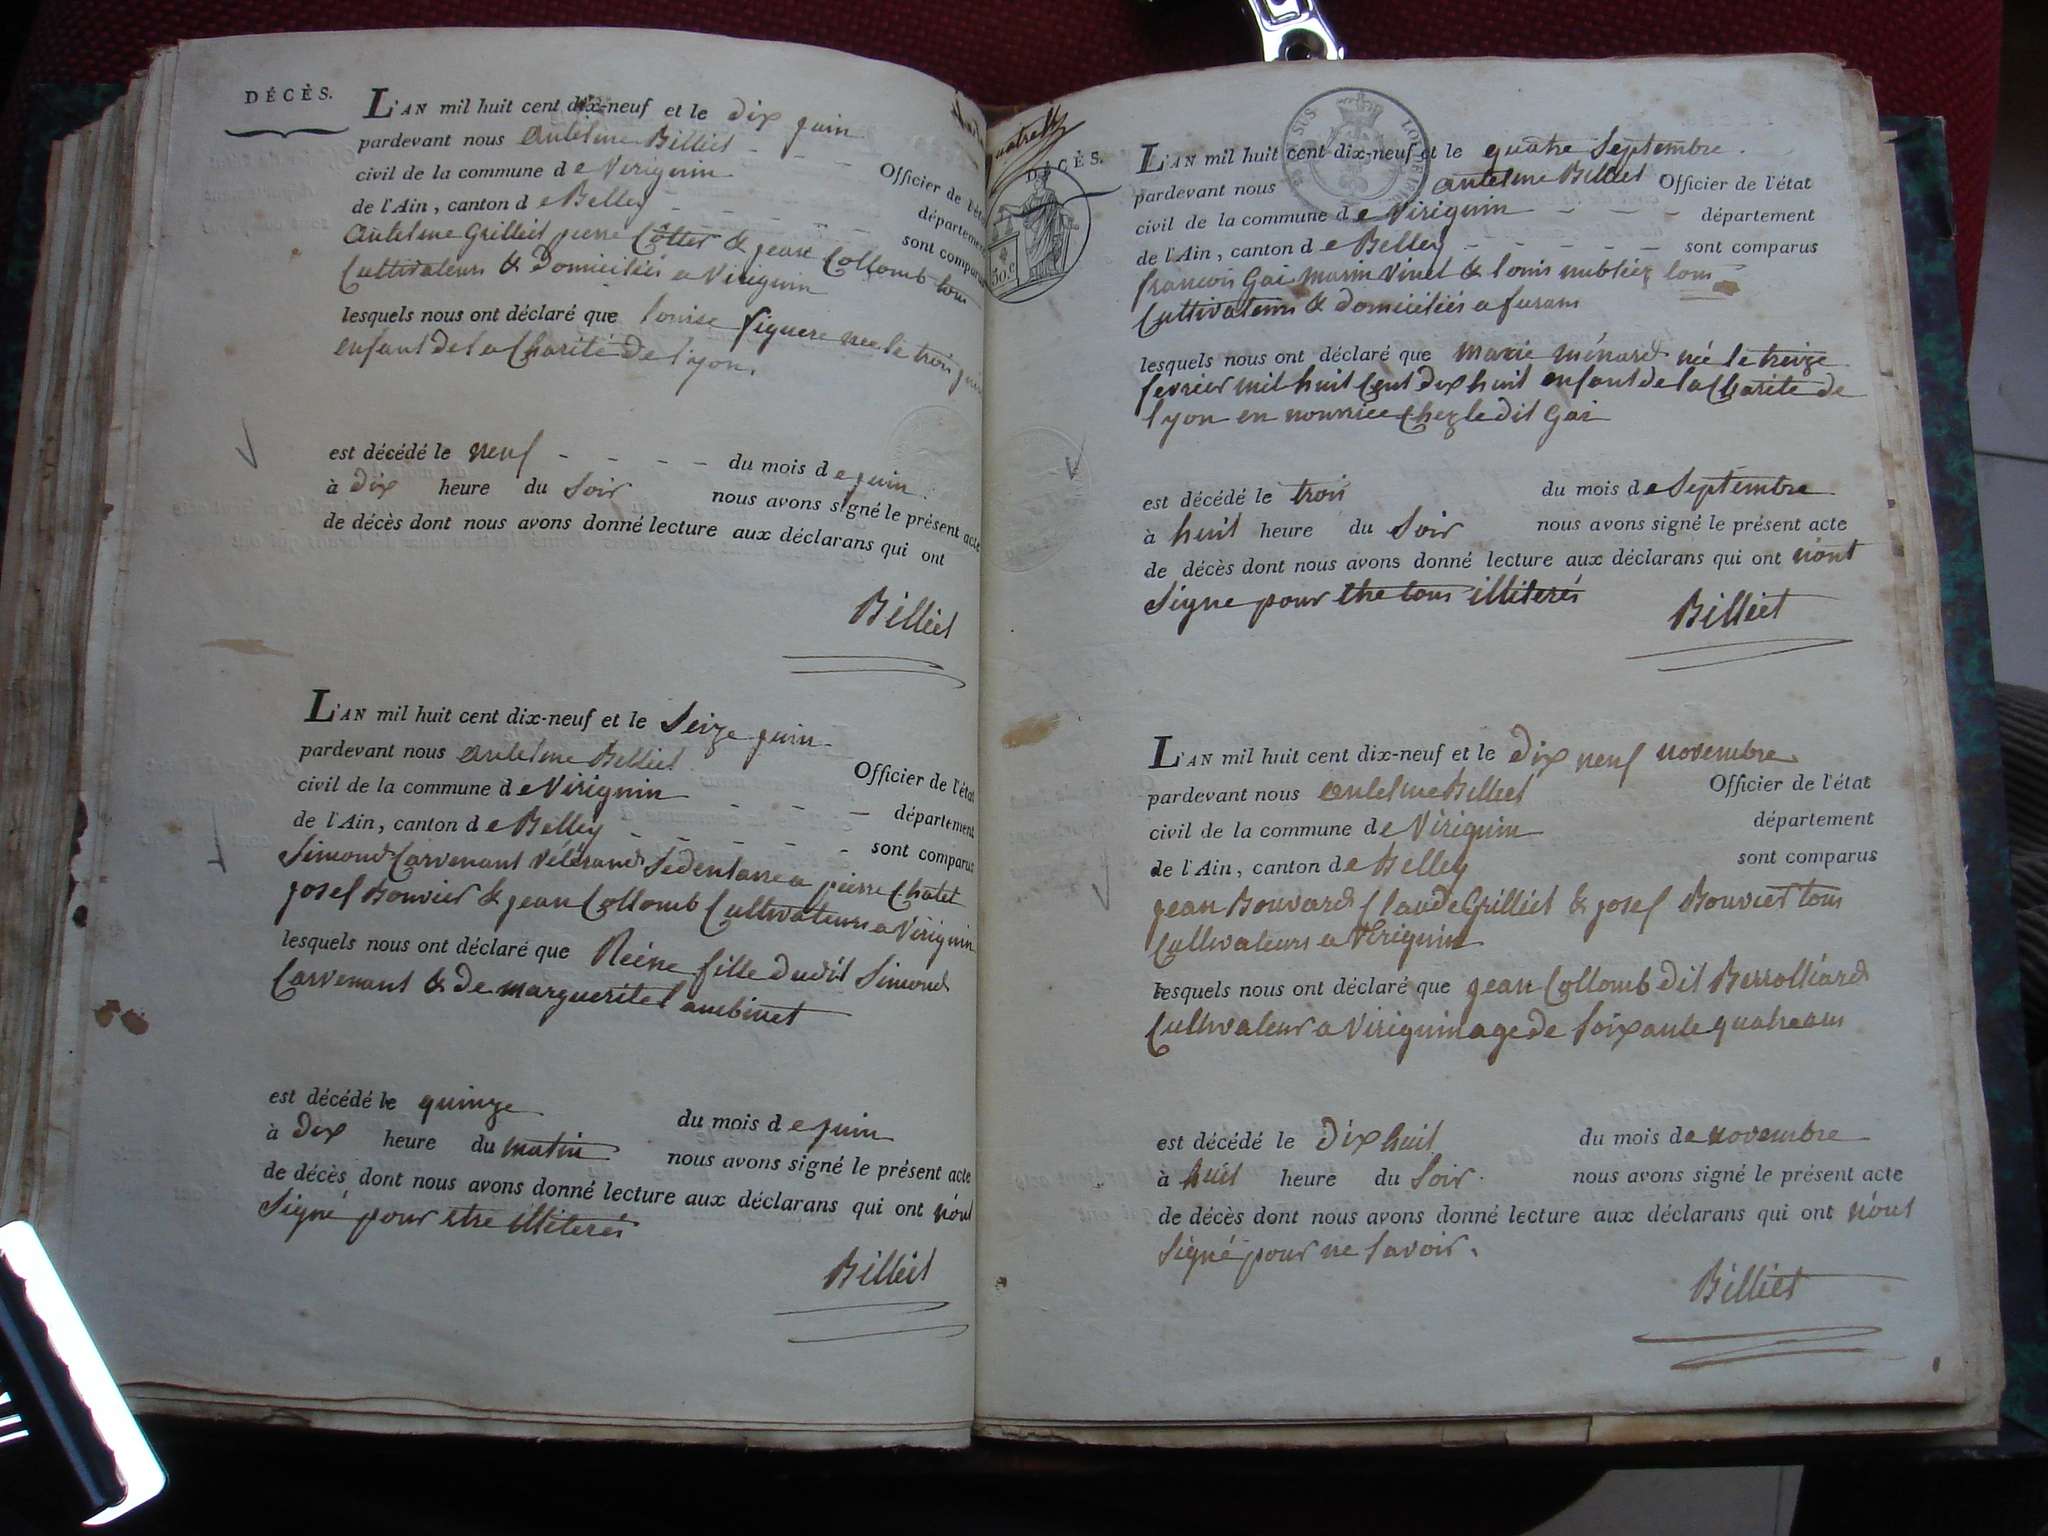 DÉCÈS.
L'AN mil huit cent dix-neuf et le dix juin
pardevant nous antelme Billiet - - - Officier de l'état
civil de la commune de Virignin département
de l'Ain, canton de Belley - - - - sont comparus
antelme Grilliet pierre Cotter & jean Collomb tous
Cultivateurs & Domiciliés a Virignin
lesquels nous ont déclaré que louise figuere née le trois juin
enfant de la Charité de lyon.
est décédé le neuf - - - - du mois de juin.
à dix heure du Soir nous avons signé le présent acte
de décès dont nous avons donné lecture aux déclarans qui ont
Billiet
L'AN mil huit cent dix-neuf et le Seize juin
pardevant nous antelme Billiet Officier de l'état
civil de la commune de Virignin - - - département
de l'Ain, canton de Belley - - - - - sont comparus
Simond Carvenant vétérand Sédentaire a pierre Chatel
josef Bouvier & jean Collomb Cultivateurs a Virignin
lesquels nous ont déclaré que Reine fille dudit Simond
Carvenant & de marguerite Lambinet
est décédé le quinze du mois de juin
à dix heure du matin nous avons signé le présent acte
de décès dont nous avons donné lecture aux déclarans qui ont n'ont
Signé pour etre illiterés
Billiet
DÉCÈS.
50.c
L'AN mil huit cent dix-neuf et le quatre Septembre.
pardevant nous antelme Billiet Officier de l'état
civil de la commune de Virignin - - - département
de l'Ain, canton de Belley - - - - - sont comparus
francois Gai marin Vinet & louis mubliez tous
Cultivateurs & domiciliés a furans
lesquels nous ont déclaré que marie ménard née le treize
fevrier mil huit Cent dix huit enfant de la Charité de
lyon en nourrice chez le dit Gai
est décédé le trois du mois de Septembre
à huit heure du Soir nous avons signé le présent acte
de décès dont nous avons donné lecture aux déclarans qui ont n'ont
Signe pour etre tous illiterés
Billiet
L'AN mil huit cent dix-neuf et le dix neuf novembre
pardevant nous antelme Billiet Officier de l'état
civil de la commune de Virignin département
de l'Ain, canton de Belley sont comparus
jean Bouvard Claude Grilliet & josef Bouvier tous
Cultivateurs a Virignin
lesquels nous ont déclaré que jean Collomb dit Berrolliard
Cultivateur a Virignin age de soixante quatre ans
est décédé le dix huit du mois de novembre
à huit heure du Soir. nous avons signé le présent acte
de décès dont nous avons donné lecture aux déclarans qui ont n'ont
Signé pour ne savoir.
Billiet